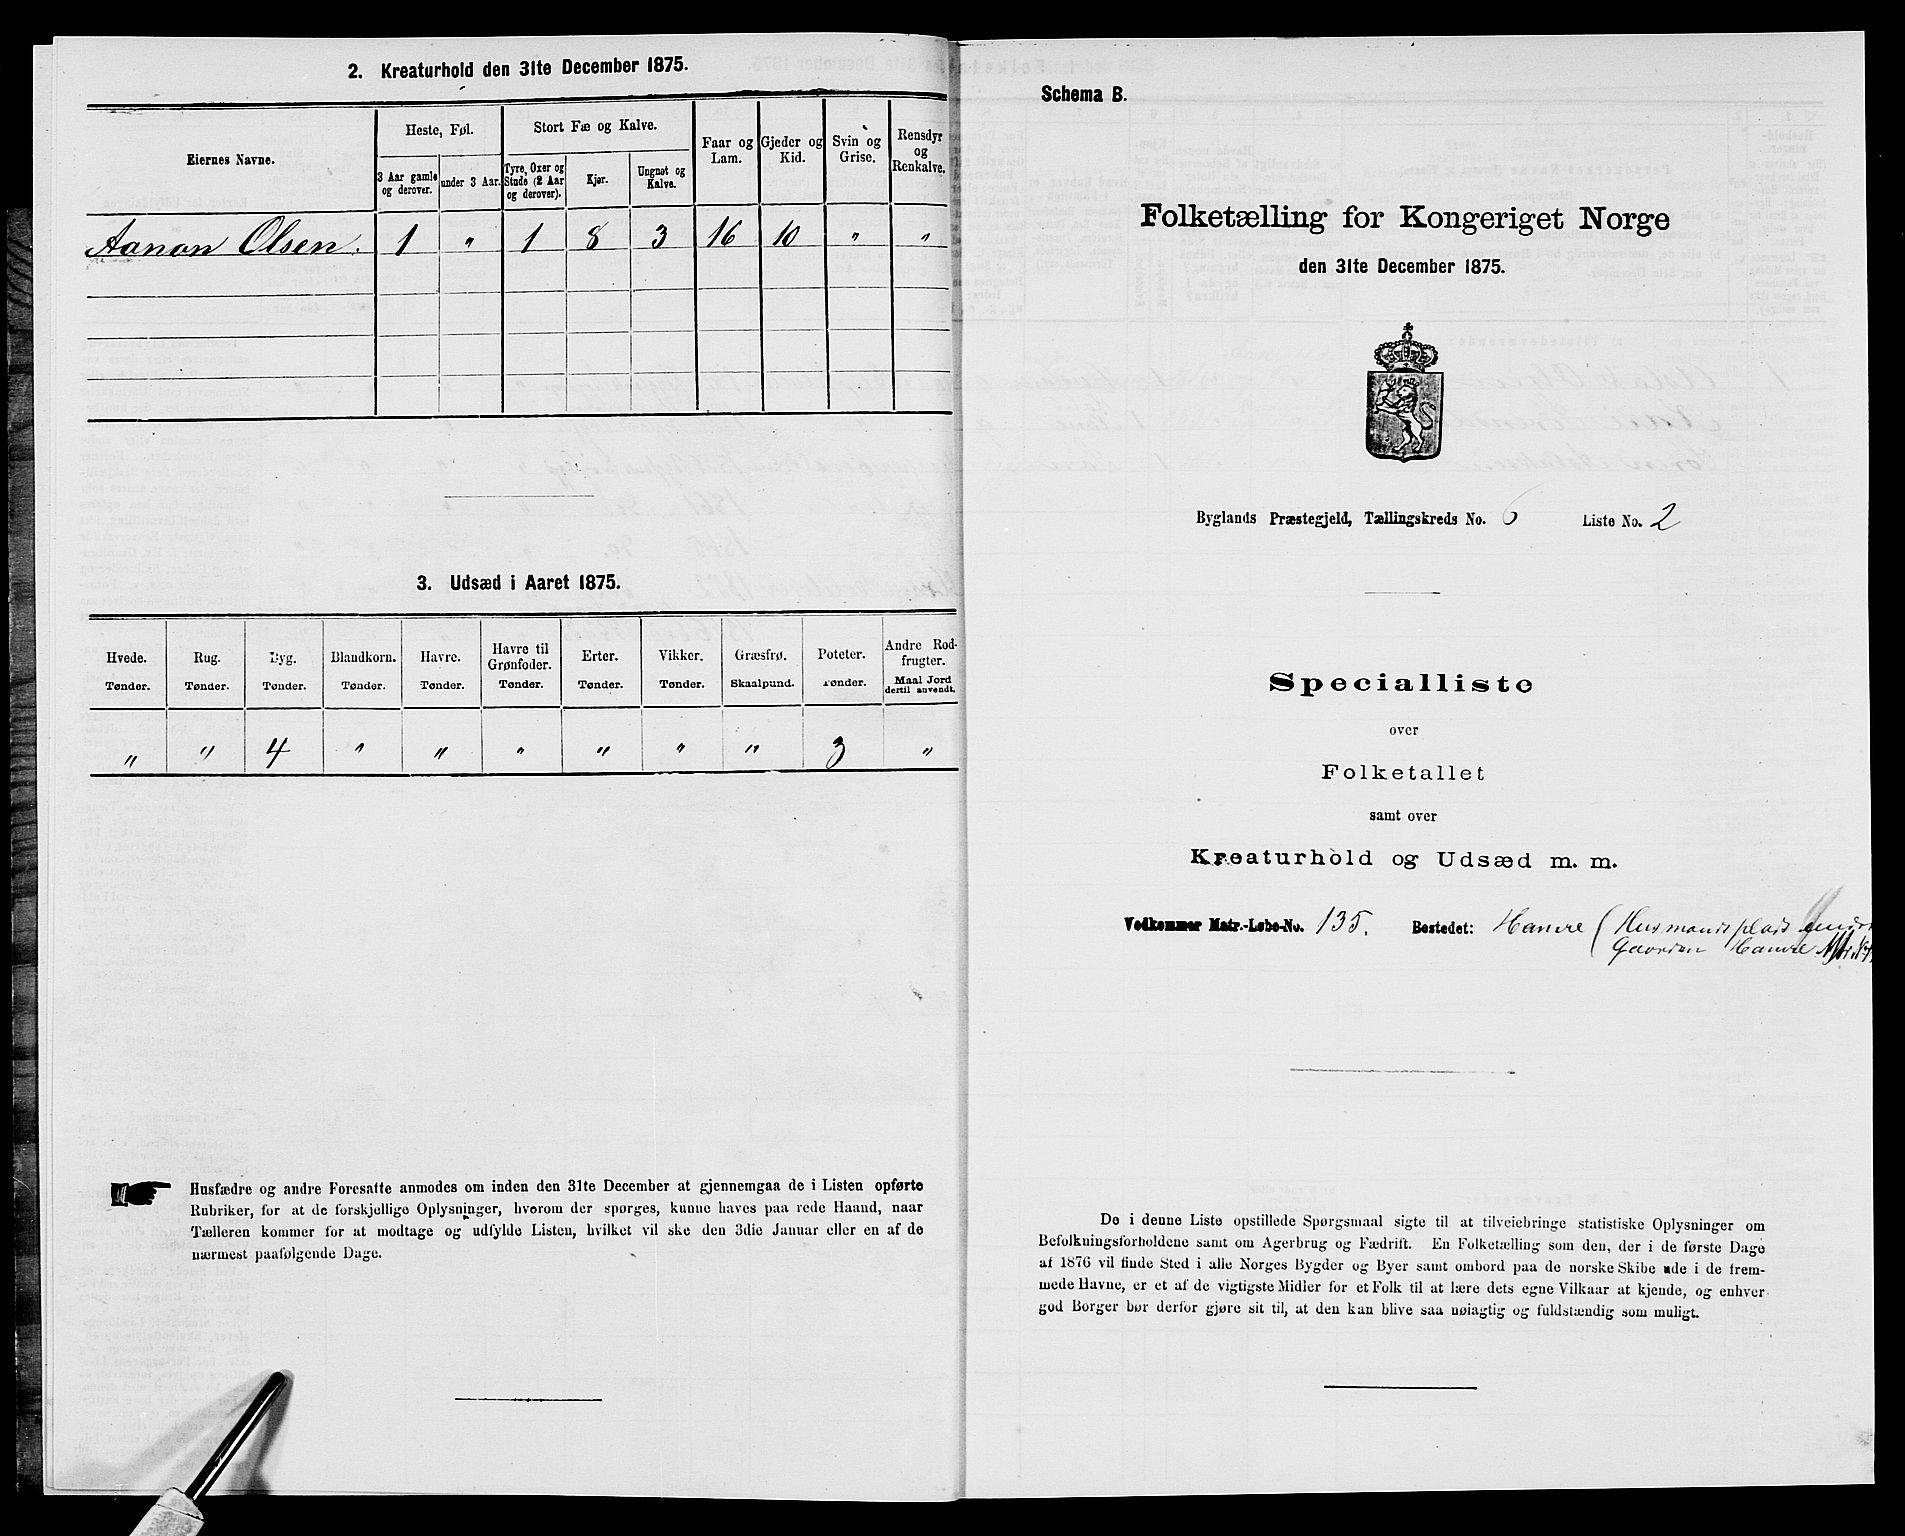 2. Kreaturhold den 31te December 1875.
Eiernes Navne.
Heste, Føl.
Stort Fæ og Kalve.
Faar og
Lam.
Gjeder og
Kid.
Svin og
Grise.
Rensdyr
og
Renkalve.
3 Aar gamle
og derover.
under 3 Aar.
Tyre, Oxer og
Stude (2 Aar
og derover).
Kjør.
Ungnøt og
Kalve.
Aanon Olsen. 1 " 1 8 3 16 10 " "
3. Udsæd i Aaret 1875.
Hvede. Rug. Byg. Blandkorn. Havre. Havre til
Grønfoder. Erter. Vikker. Græsfrø. Poteter. Andre Rod-
frugter.
Tønder. Tønder. Tønder. Tønder. Tønder. Tønder. Tønder. Tønder. Skaalpund. Tønder. Maal Jord
dertil anvendt.
" " 4 " " " " " " 3 "
Husfædre og andre Foresatte anmodes om inden den 31te December at gjennemgaa de i Listen opførte
Rubriker, for at de forskjellige Oplysninger, hvorom der spørges, kunne haves paa rede Haand, naar
Tælleren kommer for at modtage og udfylde Listen, hvilket vil ske den 3die Januar eller en af de
nærmest paafølgende Dage.
Schema B.
Folketælling for Kongeriget Norge
den 31te December 1875.
Byglands Præstegjeld, Tællingskreds No. 6 Liste No. 2
Specialliste
over
Folketallet
samt over
Kreaturhold og Udsæd m. m.
Vedkommer Matr.-Løbe-No. 135. Bostedet: Hamre (Husmandsplads under
Gaarden Hamre
De i denne Liste opstillede Spørgsmaal sigte til at tilveiebringe statistiske Oplysninger om
Befolkningsforholdene samt om Agerbrug og Fædrift. En Folketælling som den, der i de første Dage
af 1876 vil finde Sted i alle Norges Bygder og Byer samt ombord paa de norske Skibe ude i de frem-
mede Havne, er et af de vigtigste Midler for et Folk til at lære dets egne Vilkaar at kjende, og enhver
god Borger bør derfor gjøre sit til, at den kan blive saa nøiagtig og fuldstændig som muligt.